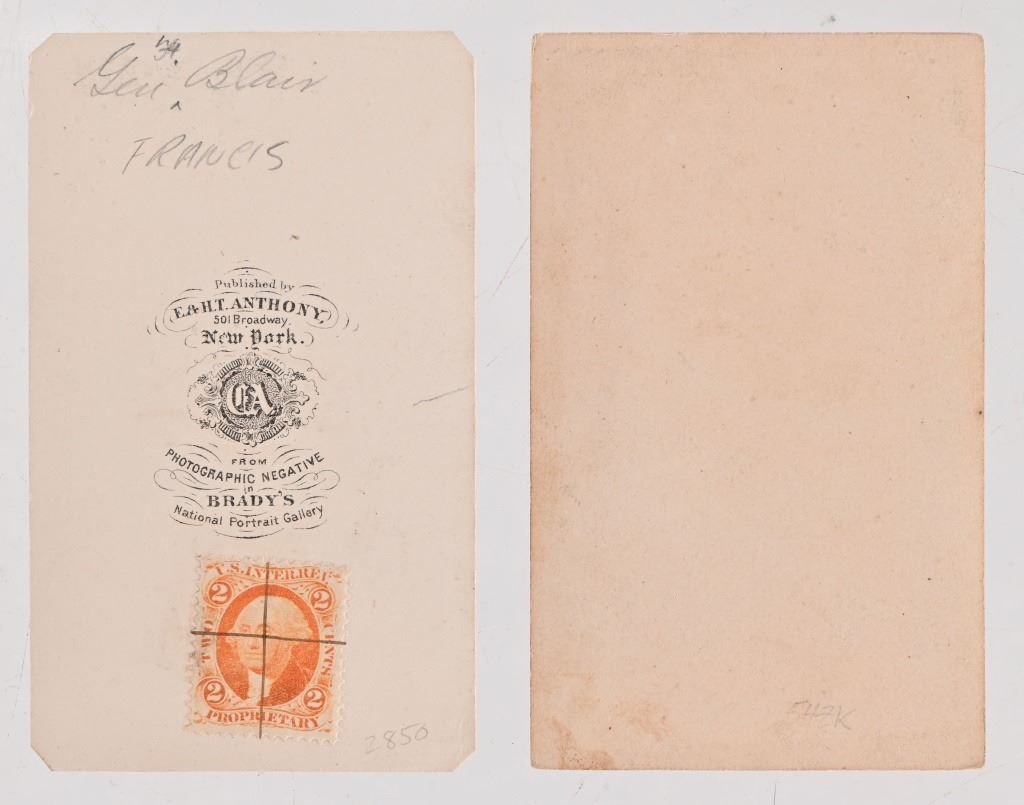 Gen Blair
FRANCIS
Published by
E.&H.T. ANTHONY,
501 Broadway,
New York.
FROM
PHOTOGRAPHIC NEGATIVE
in
BRADY'S
National Portrait Gallery
U.S. INTER.REV.
2 2
TWO CENTS.
2 2
PROPRIETARY
2850